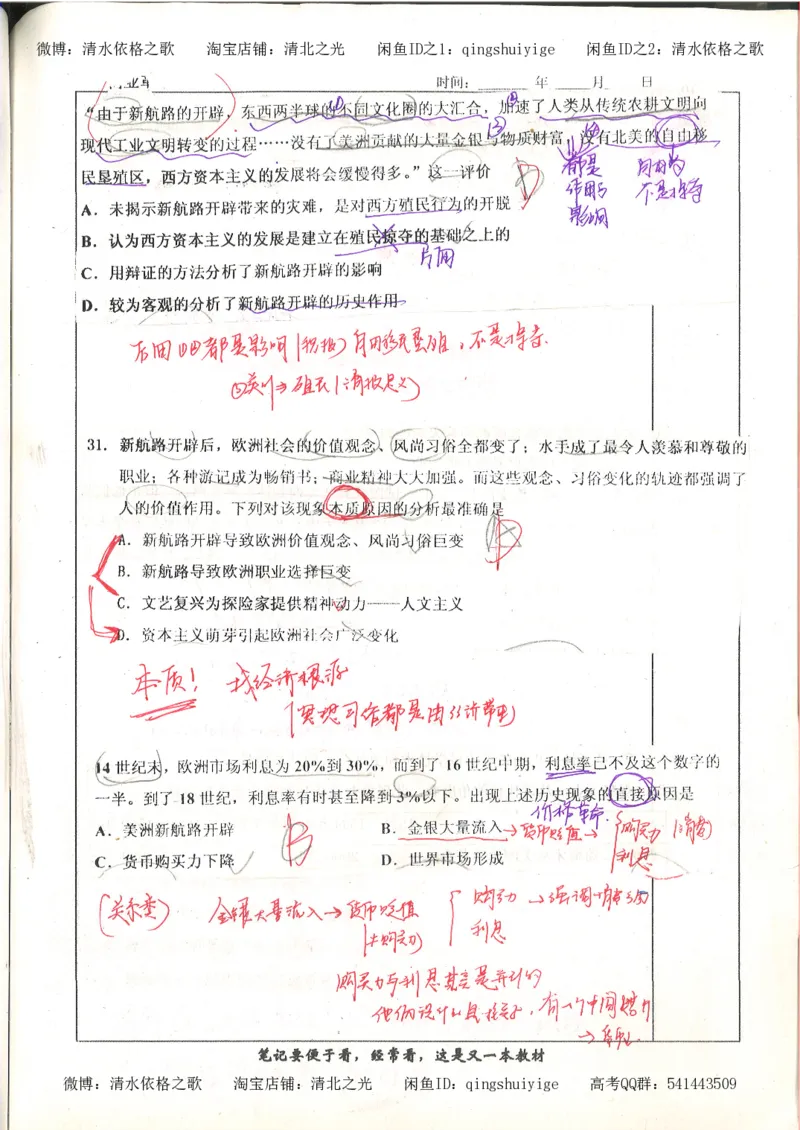 微博：清水依格之歌 淘宝店铺：清北之光 闲鱼ID之1：qingshuiyige 闲鱼ID之2：清水依格之歌
时间：____年____月 日
“由于新航路的开辟，东西两半球的不同文化圈的大汇合，加速了人类从传统农耕文明向
现代工业文明转变的过程……没有了美洲贡献的大量金银与物质财富，没有北美的自由移
民垦殖区，西方资本主义的发展将会缓慢得多。”这一评价
都是
作用与
影响
自由的
不是掠夺
A．未揭示新航路开辟带来的灾难，是对西方殖民行为的开脱
B．认为西方资本主义的发展是建立在殖民掠夺的基础之上的
片面
C．用辩证的方法分析了新航路开辟的影响
D．较为客观的分析了新航路开辟的历史作用
31．新航路开辟后，欧洲社会的价值观念、风尚习俗全都变了；水手成了最令人羡慕和尊敬的
职业；各种游记成为畅销书；商业精神大大加强。而这些观念、习俗变化的轨迹都强调了
人的价值作用。下列对该现象本质原因的分析最准确是
A．新航路开辟导致欧洲价值观念、风尚习俗巨变
B．新航路导致欧洲职业选择巨变
C．文艺复兴为探险家提供精神动力——人文主义
D．资本主义萌芽引起欧洲社会广泛变化
本质！ 找经济根源
14世纪末，欧洲市场利息为20%到30%，而到了16世纪中期，利息率已不及这个数字的
一半。到了18世纪，利息率有时甚至降到3%以下。出现上述历史现象的直接原因是
价格革命
A．美洲新航路开辟
B．金银大量流入→货币贬值→ 购买力
利息
C．货币购买力下降
D．世界市场形成
金银大量流入→货币贬值
购买力
利息
购买力与利息其实是并列的
笔记要便于看，经常看，这是又一本教材
微博：清水依格之歌 淘宝店铺：清北之光 闲鱼ID：qingshuiyige 高考QQ群：541443509